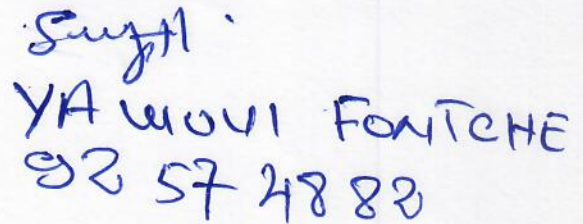 YAWOVI FONTCHE
92 57 48 82